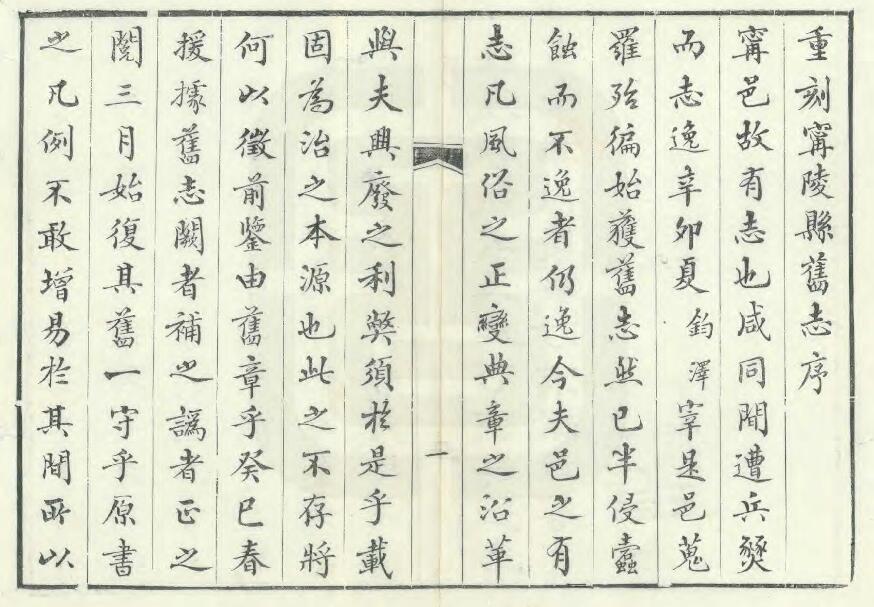 重刻寗陵縣舊志序
寗邑故有志也咸同間遭兵燹
而志逸辛卯夏鈞澤宰是邑蒐
羅殆徧始獲舊志然已半侵蠹
蝕而不逸者仍逸今夫邑之有
志凡風俗之正變典章之沿革
一
與夫興廢之利獘須於是乎載
固為治之本源也此之不存將
何以徵前鑒由舊章乎癸巳春
援據舊志闕者補之譌者正之
閱三月始復其舊一守乎原書
之凡例不敢增易於其間所以